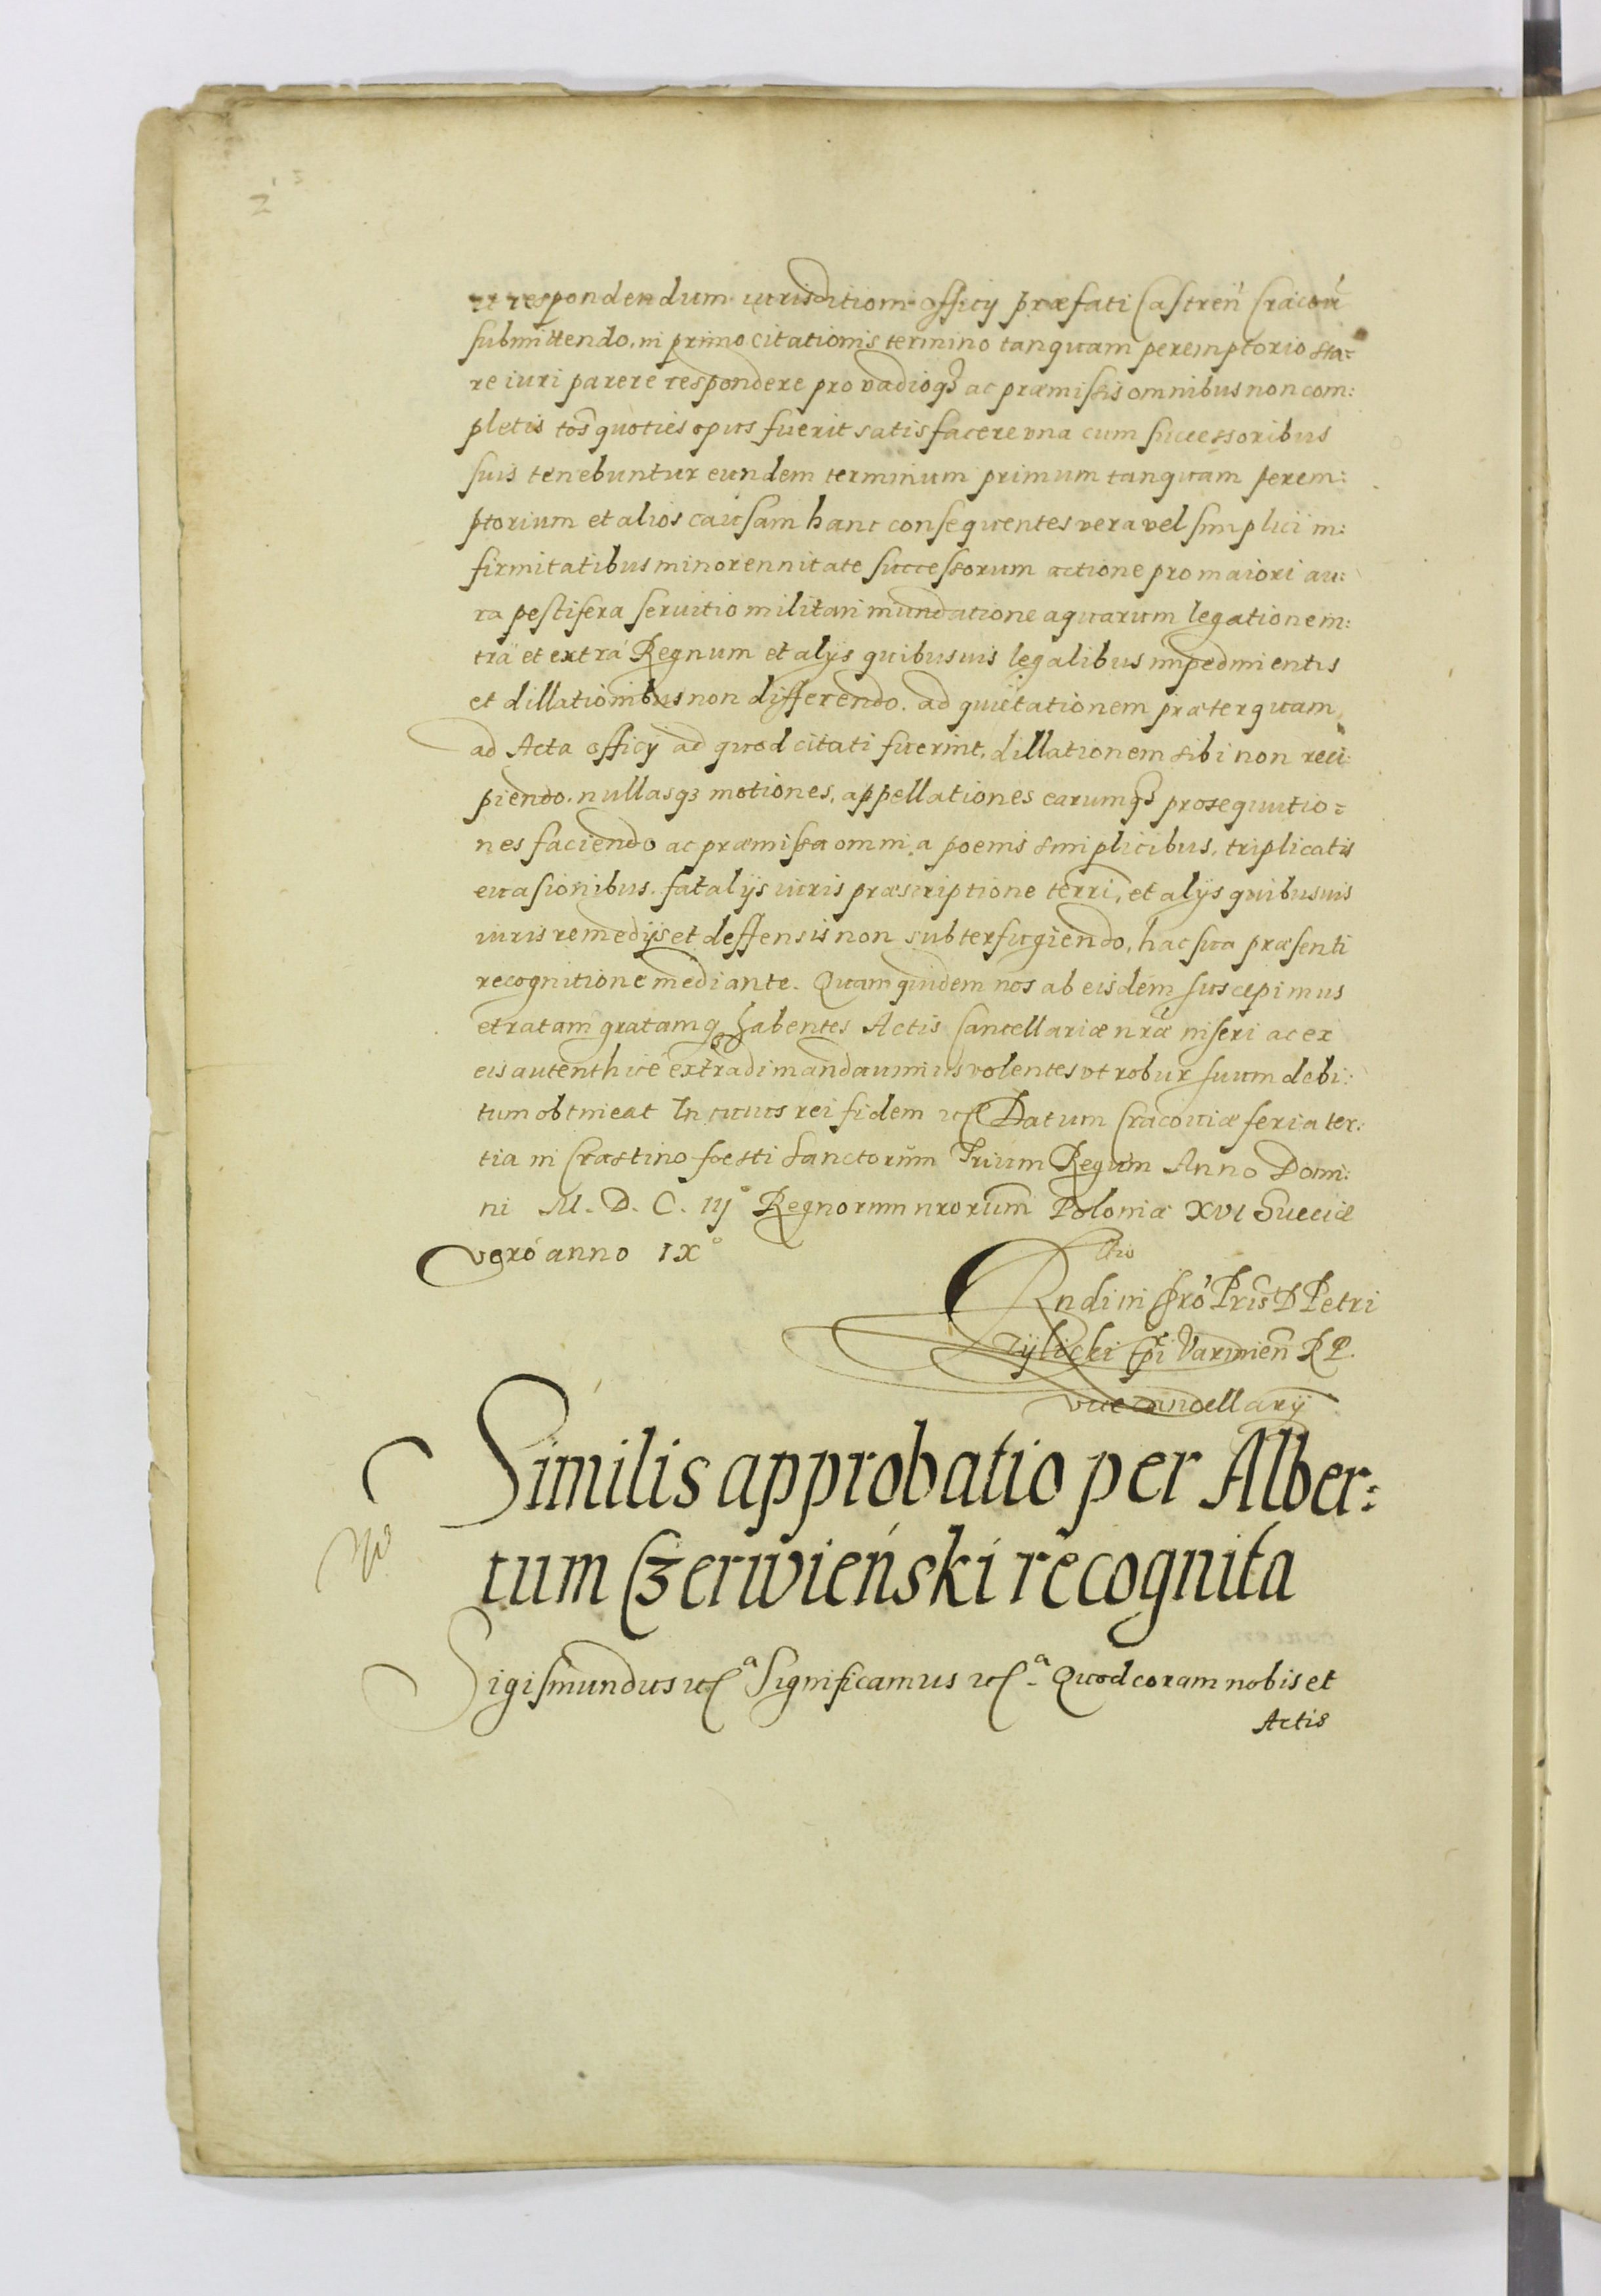 et respondendum iurisditioni officÿ præfati Castreñ Cracoũ
submittendo, in primo citationis termino tanquam peremptorio sta=
re iuri parere respondere pro vadioqȝ ac præmissis omnibus non com:
pletis tos quoties opus fuerit satisfacere vna cum successoribus
suis tenebuntur eundem terminum primum tanquam perem:
ptorium et alios causam hanc consequentes vera vel simplici in:
firmitatibus minorennitate successorum actione pro maiori au:
ra pestifera seruitio militari inundatione aquarum legatione in:
tra et extra Regnum et alÿs quibusuis legalibus impedimientis
et dillationibus non differendo. ad quietationem præterquam
ad Acta officÿ ad quod citati fuerint, dillationem sibi non reci:
piendo. nullasqȝ motiones, appellationes earumqȝ prosequutio=
nes faciendo ac præmissa omnia poenis simplicibus, triplicatis
euasionibus. fatalÿs iuris præscriptione terri, et alÿs quibusuis
iuris remedÿs et deffensis non subterfugiendo, hac sua præsenti
recognitione mediante. Quam quidem nos ab eisdem suscepimus
et ratam gratamqȝ habentes Actis Cancellariæ nræ inseri ac ex
eis autenthice extradi mandauimus volentes vt robur suum debi:
tum obtineat In cuius rei fidem etc Datum Cracouiæ feria ter:
tia in Crastino foesti Sanctorum Trium Regum Anno Domi:
ni M. D. C. iij° Regnorum nrorum Poloniæ XVI Sueciæ
vero anno IX°
Rndi in Chro Pris D Petri
Tÿlicki Epi Varmien R P.
vicecancellarÿ
Similis approbatio per Alber:
tum Czerwieński recognita
Sigismundus etc a Significamus etc a Quod coram nobis et
Actis